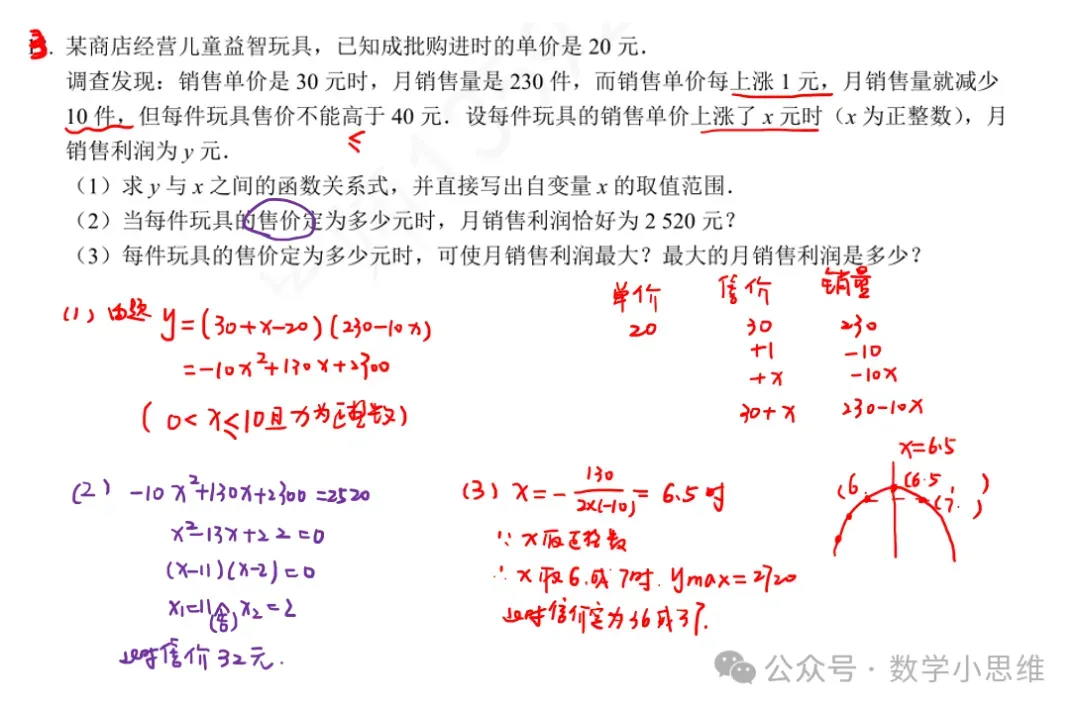 3. 某商店经营儿童益智玩具，已知成批购进时的单价是 20 元．
调查发现：销售单价是 30 元时，月销售量是 230 件，而销售单价每上涨 1 元，月销售量就减少
10 件，但每件玩具售价不能高于 40 元．设每件玩具的销售单价上涨了 x 元时（x 为正整数），月
≤
销售利润为 y 元．
（1）求 y 与 x 之间的函数关系式，并直接写出自变量 x 的取值范围．
（2）当每件玩具的售价定为多少元时，月销售利润恰好为 2 520 元？
（3）每件玩具的售价定为多少元时，可使月销售利润最大？最大的月销售利润是多少？
单价 售价 销量
20 30 230
+1 -10
+x -10x
30+x 230-10x
(1) 由题 y=(30+x-20)(230-10x)
=-10x²+130x+2300
(0<x≤10且x为正整数)
(2) -10x²+130x+2300=2520
x²-13x+22=0
(x-11)(x-2)=0
x₁=11(舍) x₂=2
此时售价32元.
(3) x=-130/2×(-10)=6.5时
∵x取正整数
∴x取6.或7时. ymax=2720
此时售价定为36或37.
x=6.5
(6. (6.5, ) (7. )
公众号 · 数学小思维